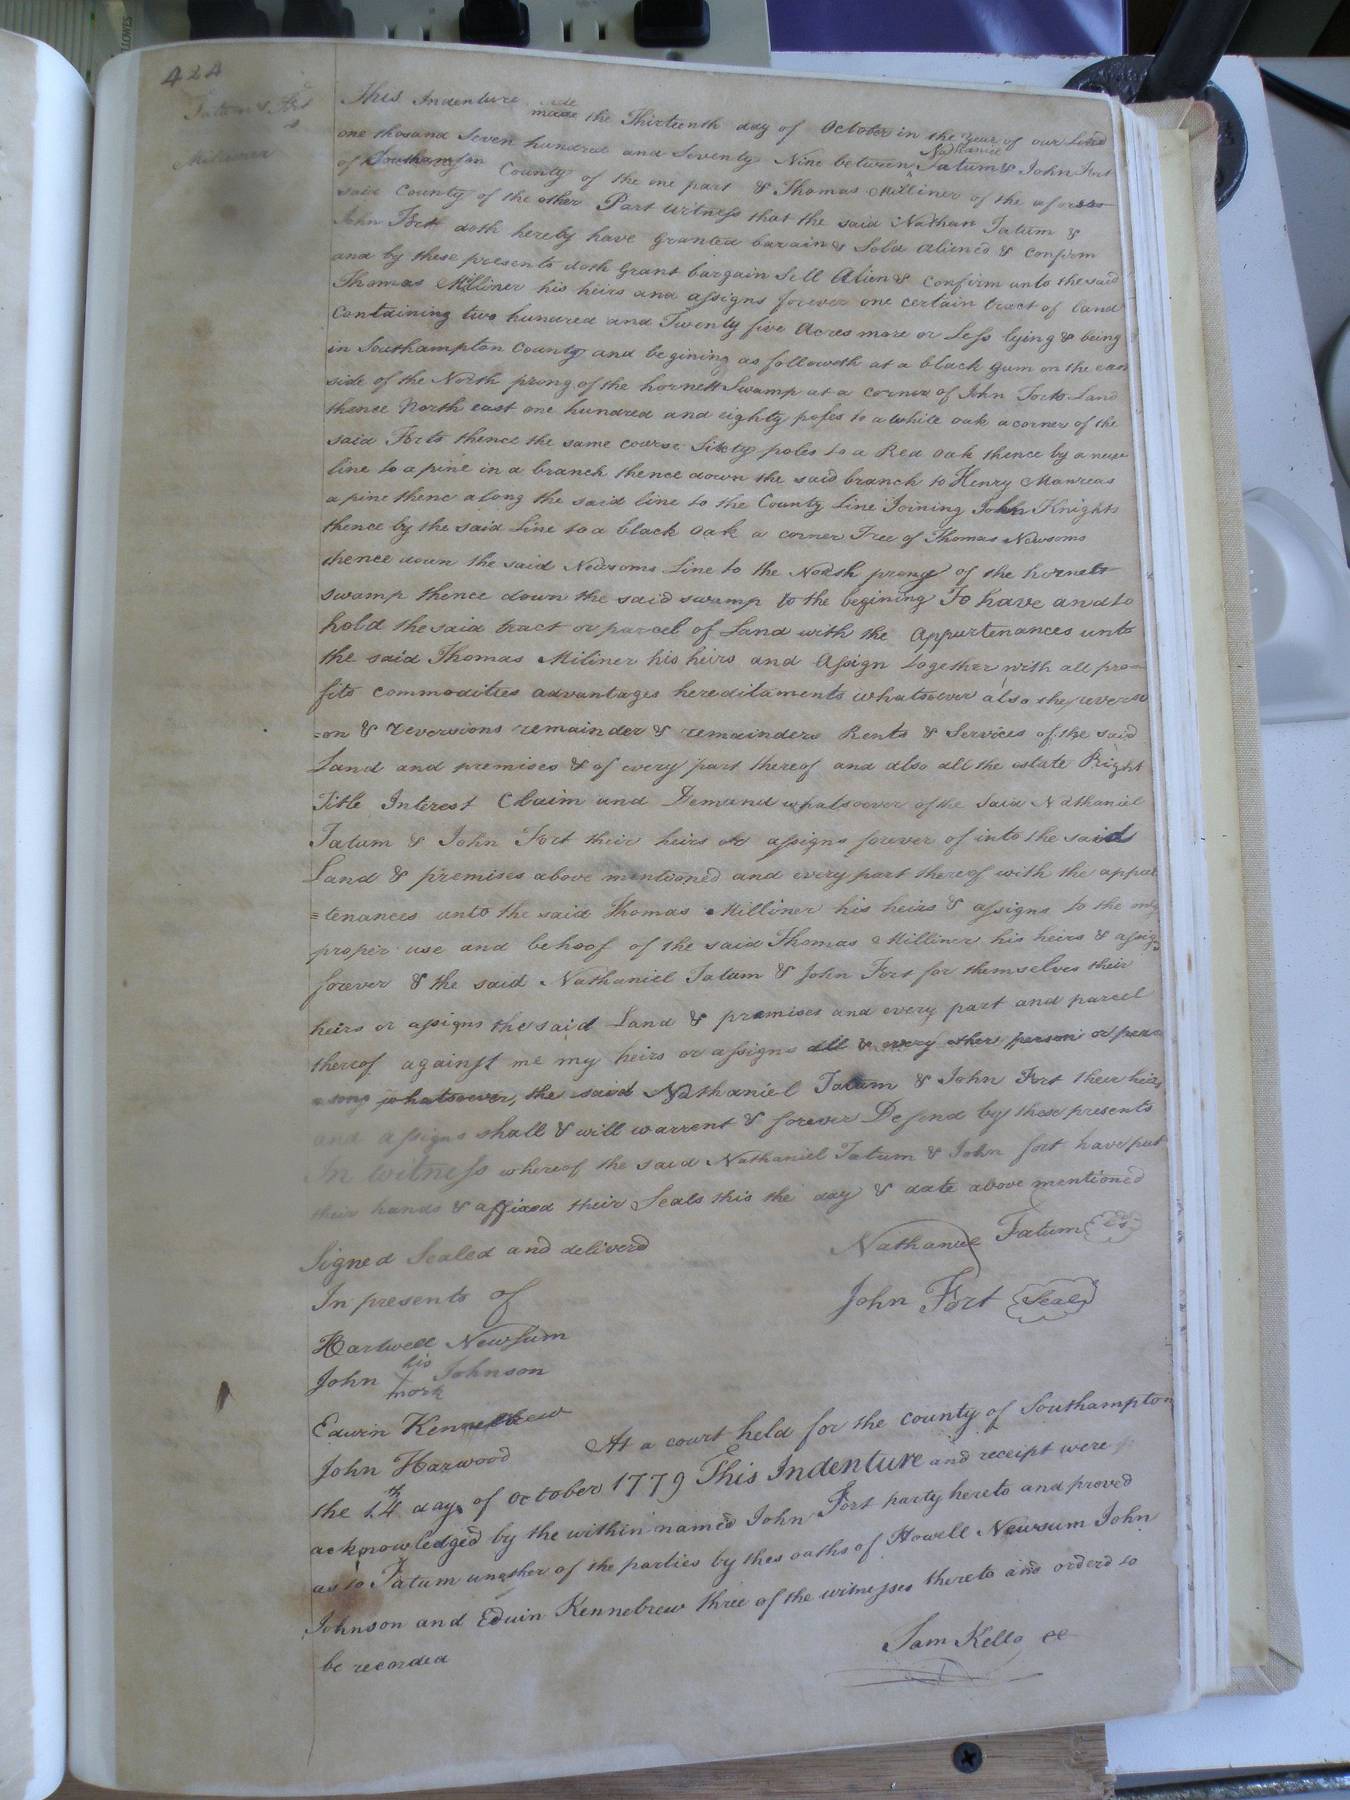 424
Tatum & Fort
to
Milliner
This Indenture made the Thirteenth day of October in the Year of our Lord
one thosand Seven hundred and Seventy Nine between Nathaniel Tatum & John Fort
of Southampton County of the one part & Thomas Milliner of the afore
said County of the other Part Witness that the said Nathan Tatum &
John Fort doth hereby have granted barain & Sold aliened & confirm
and by these presents doth Grant bargain Sell Alien & Confirm unto the said
Thomas Milliner his heirs and assigns forever one certain tract of land
Containing two hundred and Twenty five Acres more or Less lying & being
in Southampton County and begining as followeth at a black gum on the east
side of the North prong of the hornett Swamp at a corner of John Forts Land
thence North east one hundred and eighty poses to a white oak a corner of the
said Forts thence the same course Sixty poles to a Red oak thence by a new
line to a pine in a branch thence down the said branch to Henry
a pine thenc along the said line to the County line Joining John Knights
thence by the said Line to a black Oak a corner Tree of Thomas Newsoms
thence down the said Newsoms Line to the North prong of the hornets
swamp thence down the said swamp to the begining To have and to
hold the said tract or parcel of Land with the Appurtenances unto
the said Thomas Miliner his heirs and Assign together with all pro=
fits commodities advantages hereditaments whatsoever also the reversi
=on & reversions remainder & remainders Rents & Services of the said
Land and premises & of every part thereof and also all the estate Right
Title Interest Claim and Demand whatsoever of the Said Nathaniel
Tatum & John Fort their heirs or assigns forever of into the said
Land & premises above mentioned and every part thereof with the appur
=tenances unto the said Thomas Milliner his heirs & assigns to the only
proper use and behoof of the said Thomas Milliner his heirs & assigs
forever & the said Nathaniel Tatum & John Fort for themselves their
heirs or assigns the said Land & premises and every part and parcel
thereof against me my heirs or assigns all & every other person or pers
=sons whatsoever, the said Nathaniel Tatum & John Fort their heirs
and assigns shall & will warrent & forever Defend by these presents
In witness whereof the said Nathaniel Tatum & John fort have put
their hands & affixed their Seals this the day & date above mentioned
Signed Sealed and deliverd
Nathaniel Tatum
In presents of
John Fort Seal
Hartwell Newsum
his
John Johnson
mark
Edwin Kennebrew
John Harwood
At a court held for the county of Southampton
the 14th day of October 1779 This Indenture and receipt were
acknowledged by the within named John Fort party hereto and proved
as to Tatum of the parties by the oaths of Howell Newsum John
Johnson and Edwin Kennebrew three of the witnesses thereto and orderd to
be recorded
Sam Kello cc